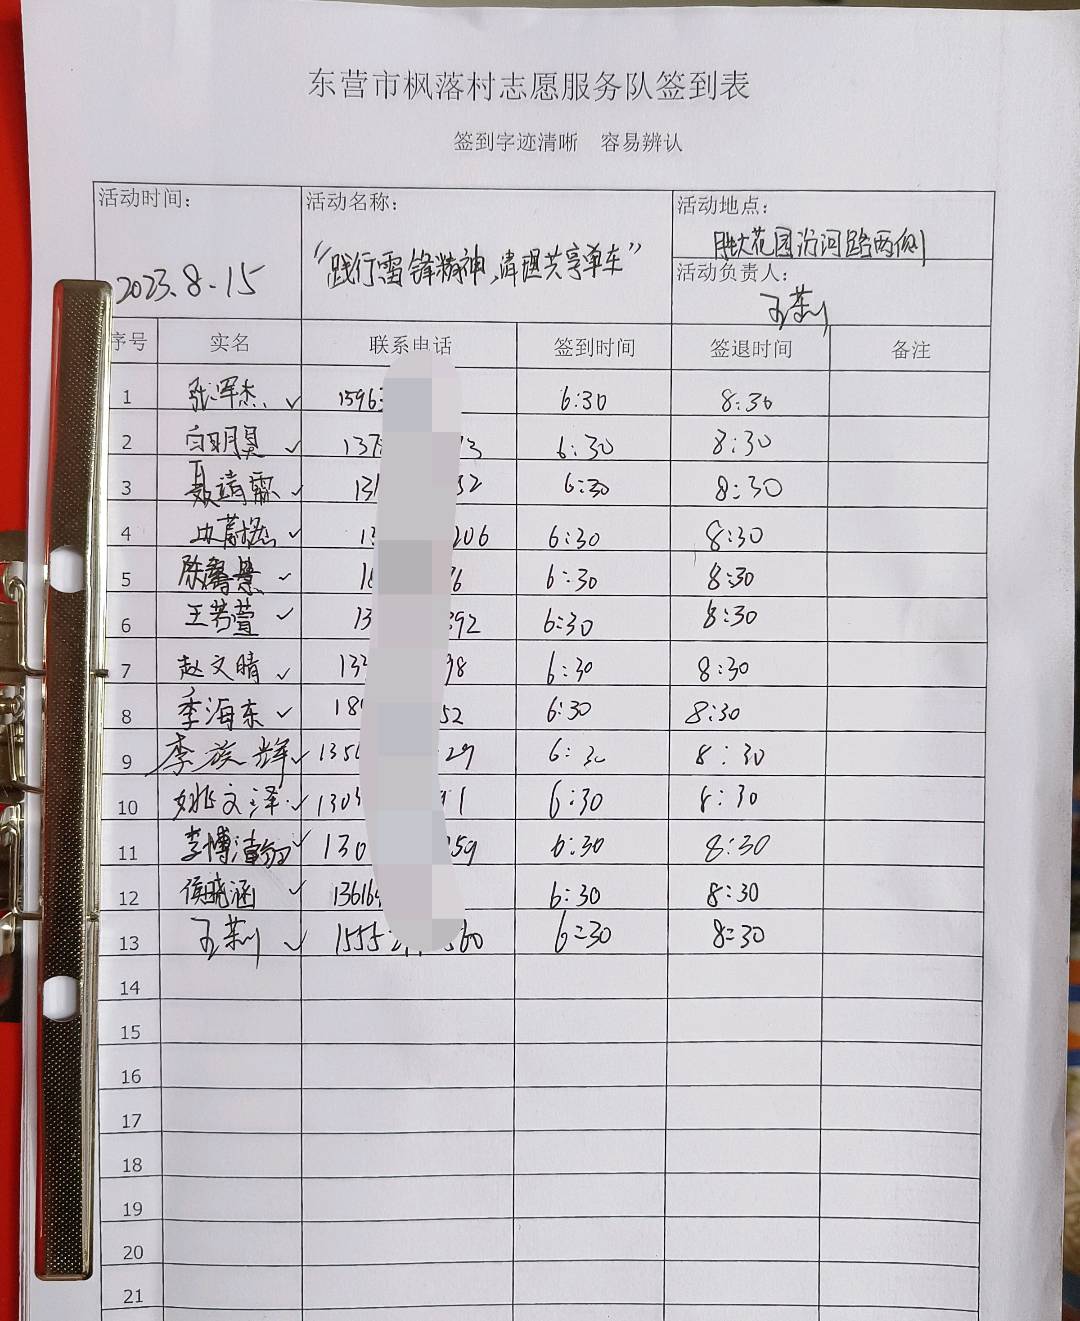 东营市枫落村志愿服务队签到表
签到字迹清晰 容易辨认
活动时间: 活动名称: 活动地点:
胜大花园沂河路两侧
2023.8.15 “践行雷锋精神,清理共享单车” 活动负责人:
序号 实名 联系电话 签到时间 签退时间 备注
1 张军杰 1596 6:30 8:30
2 白明昊 137 3 6:30 8:30
3 聂靖霖 13 52 6:30 8:30
4 13 206 6:30 8:30
5 陈馨慧 18 6 6:30 8:30
6 王若萱 13 892 6:30 8:30
7 赵文晴 133 98 6:30 8:30
8 季海东 18 52 6:30 8:30
9 李 辉 1356 29 6:30 8:30
10 姚文泽 130 91 6:30 8:30
11 李博瀚 130 359 6:30 8:30
12 侯晓涵 1361 6:30 8:30
13 1555 560 6:30 8:30
14
15
16
17
18
19
20
21